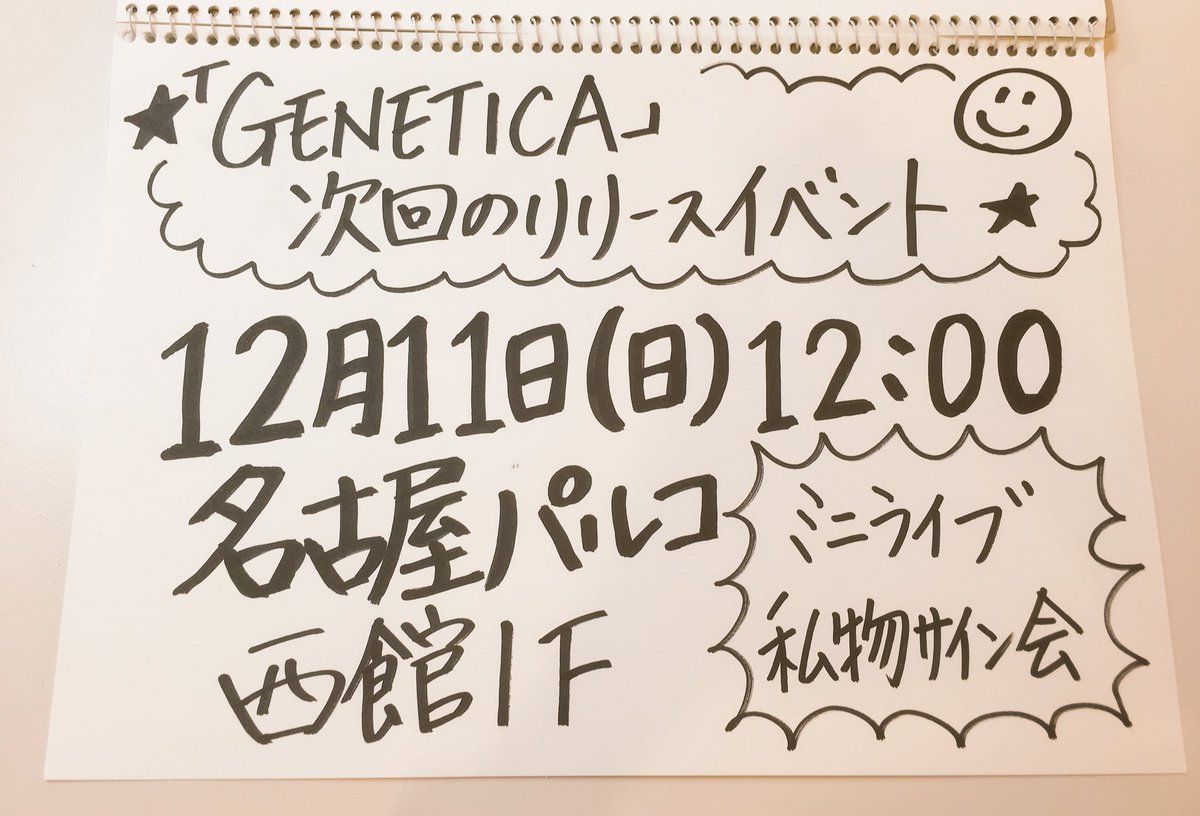 ★「GENETICA」
次回のリリースイベント★
12月11日(日)12:00
名古屋パルコ
西館1F
ミニライブ
私物サイン会